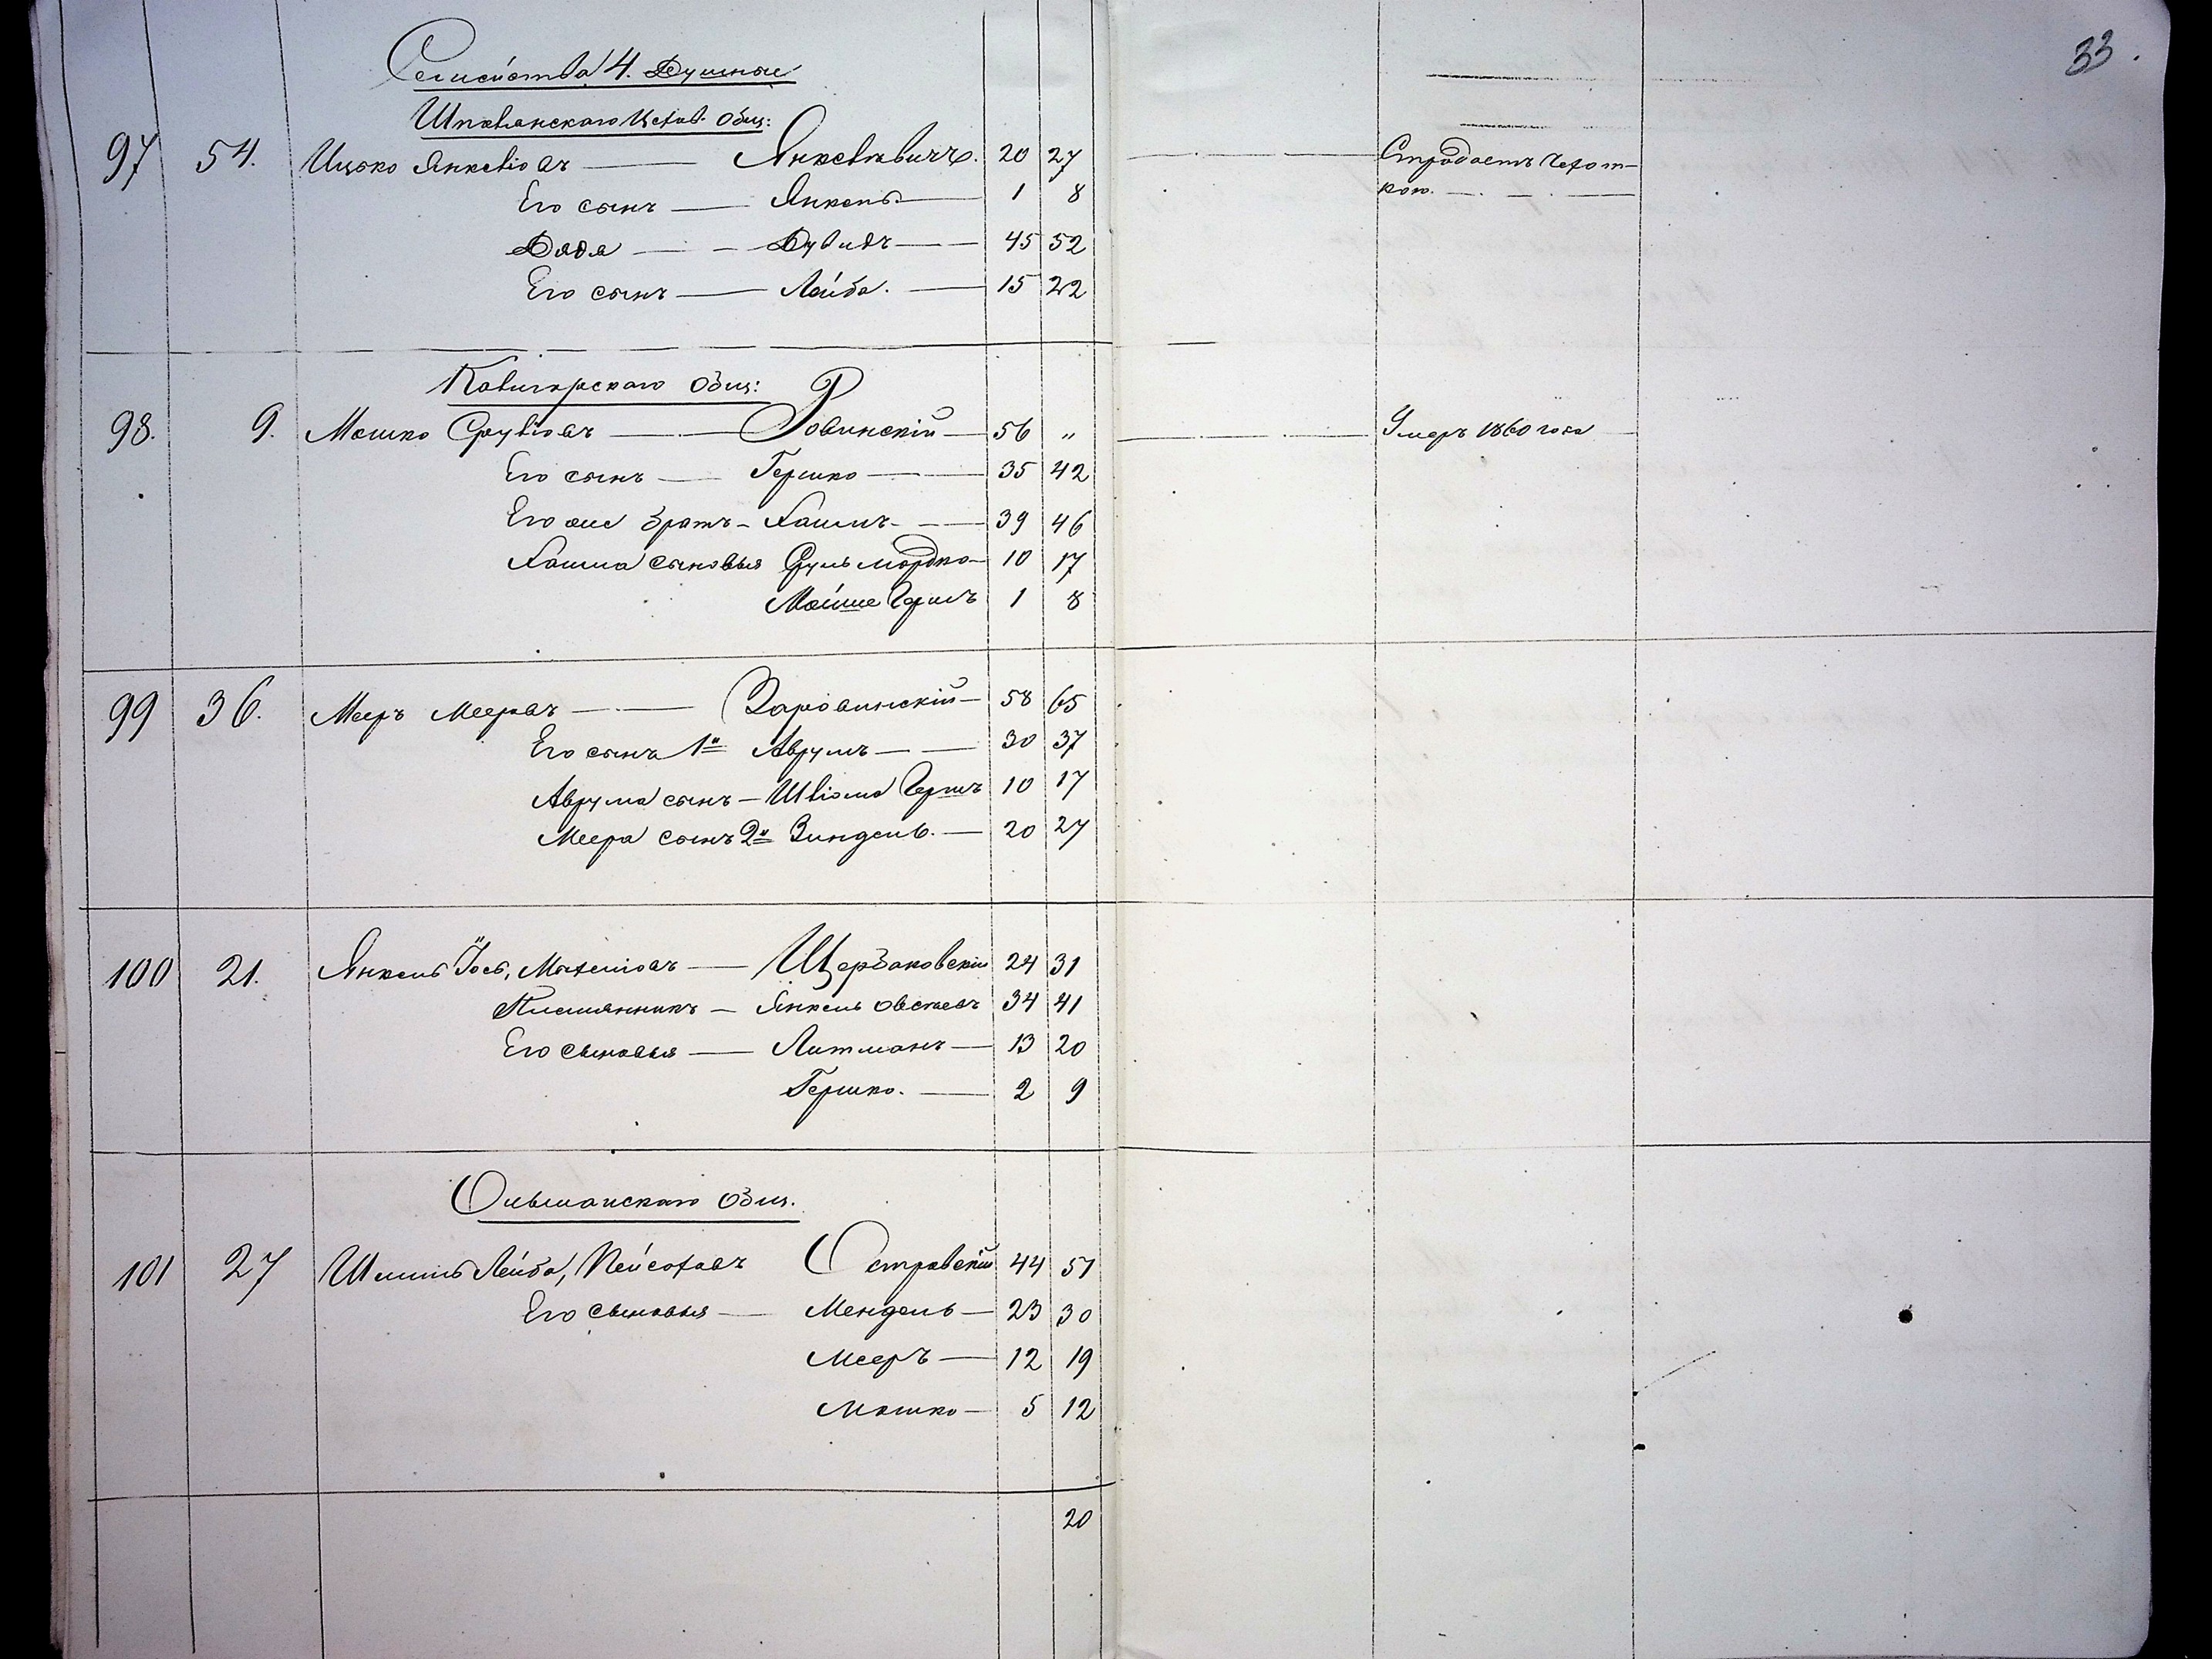 33.
Семейства 4. Душные
Шполянскаго Общ:
97 54. Ицько Янкеліовъ — Янкелевичъ. 20 27 — Страдаетъ Чехот-
кою.
Его сынъ — Янкель — 1 8
Дядя — Дувидъ — 45 52
Его сынъ — Лейба. — 15 22
Общ:
98. 9. Мошко Сруліовъ — Ровинскій — 56 „ — Умеръ 1860 года
Его сынъ — Гершко — 35 42
Его же братъ — Хаимъ — 39 46
Хаима сыновья Сруль Мордко — 10 17
Мойше Гершъ 1 8
99 36. Мееръ Мееровъ — Заровинскій — 58 65
Его сынъ 1й Аврумъ — 30 37
Аврума сынъ — Шліома Гершъ 10 17
Меера сынъ 2й Зиндель. — 20 27
100 21. Янкель Іось, — Щербаковскій 24 31
Племянникъ — Янкель Овсеевъ 34 41
Его сыновья — Литманъ — 13 20
Гершко. — 2 9
Ольшанскаго Общ.
101 27 Шмиль Лейба, Пейсаховъ Островскій 44 51
Его сыновья — Мендель — 23 30
Мееръ — 12 19
Мошко — 5 12
20